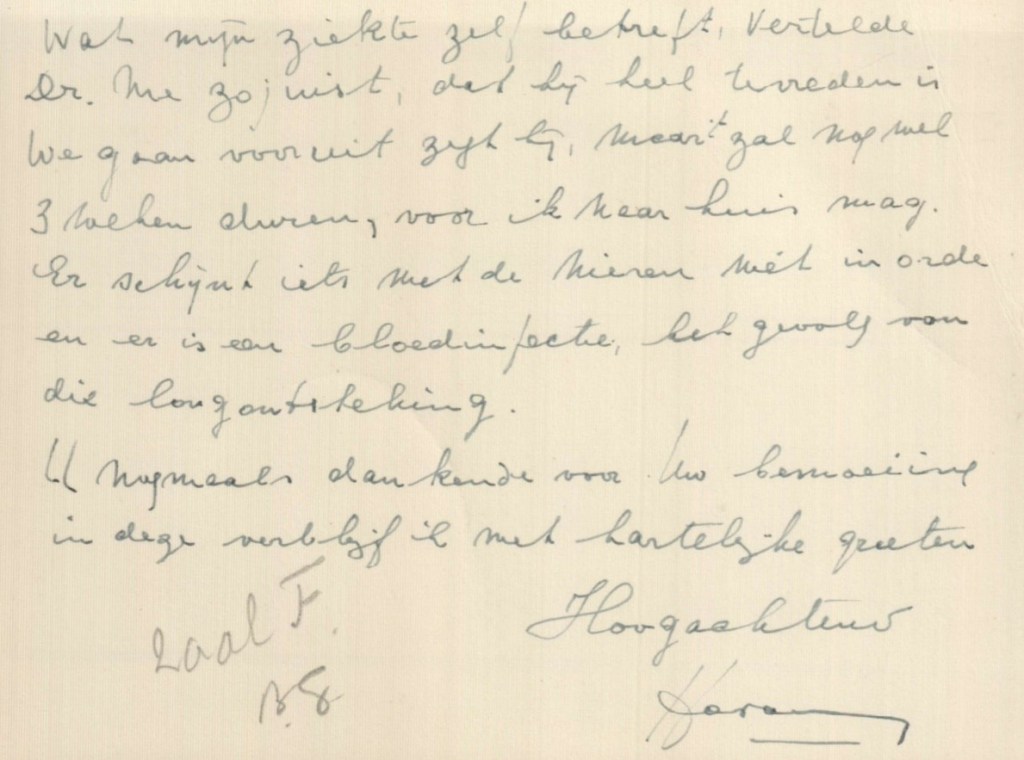 Wat mijn ziekte zelf betreft, vertelde
Dr. Me zojuist, dat hij heel tevreden is
We gaan vooruit zegt hij, maar 't zal nog wel
3 weken duren, voor ik naar huis mag.
Er schijnt iets met de nieren niet in orde
en er is een bloedinfectie, het gevolg van
die longontsteking.
U nogmaals dankende voor Uw bemoeiing
in deze verblijf ik met hartelijke groeten
Hoogachtend
zaal F.